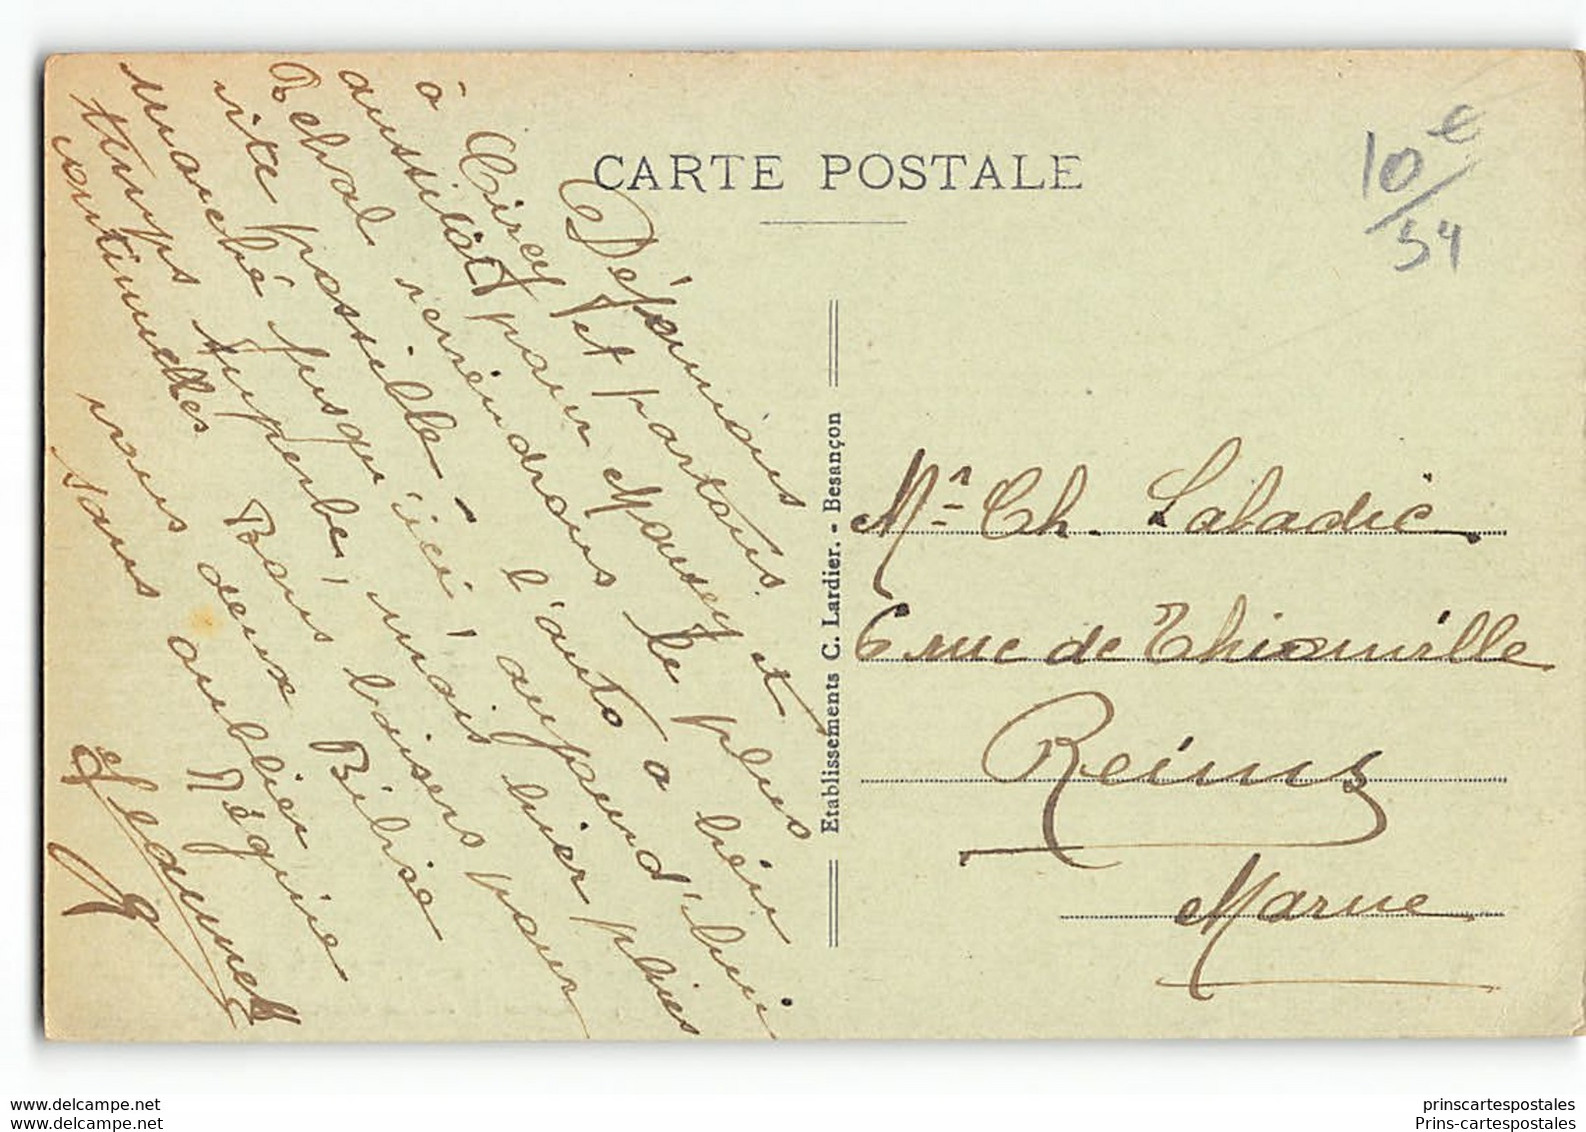 CARTE POSTALE
10 e
54
Déjeunons
à Cirey et partons
aussitôt pour Moussey et
Réchal reviendrons le plus
vite possible - l'auto a bien
marché jusqu'ici, aujourd'hui
temps superbe, mais hier pluies
continuelles. Bons baisers pour
vous deux Bibise
sans oublier Régine
Etablissements C. Lardier. - Besançon
Mr Ch. Labadié
6 rue de Thionville
Reims
Marne
www.delcampe.net
prinscartespostales
www.delcampe.net
Prins-cartespostales